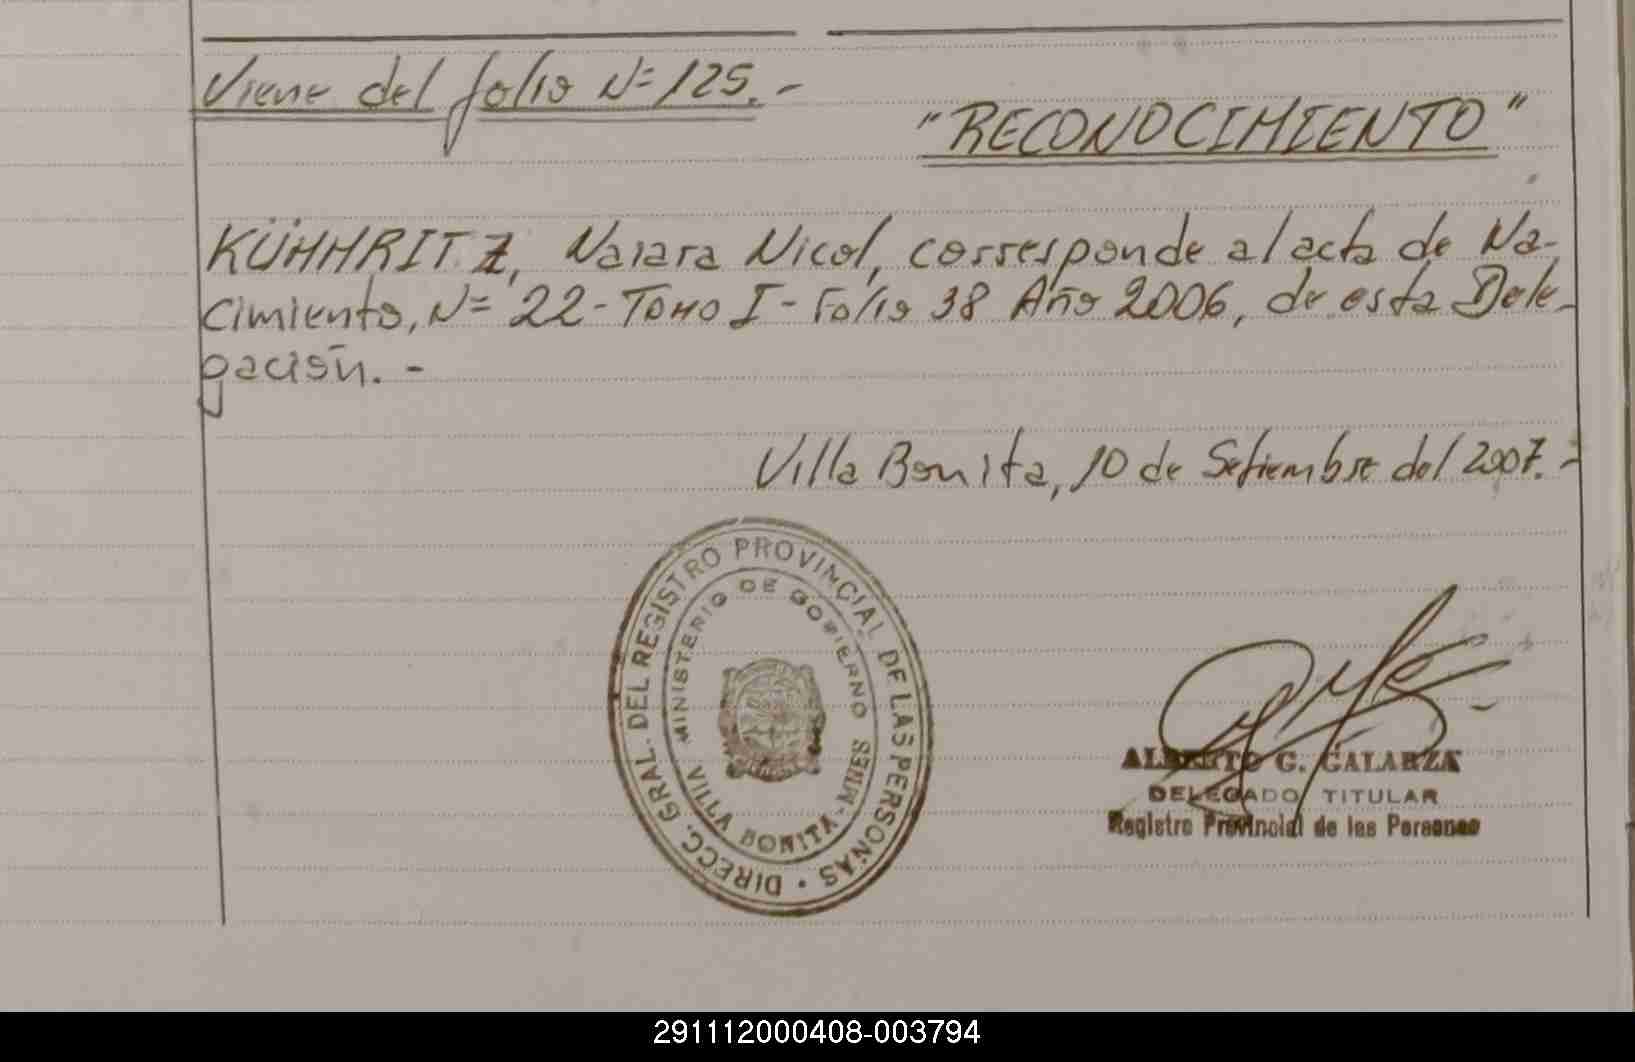 Viene del folio Nº 125.-
"RECONOCIMIENTO"
KÜHHRITZ, Naiara Nicol, corresponde al acta de Na-
cimiento, Nº 22- Tomo I- Folio 38 Año 2006, de esta Dele-
gación.-
Villa Bonita, 10 de Setiembre del 2007.-
DIRECC. GRAL. DEL REGISTRO PROVINCIAL DE LAS PERSONAS
MINISTERIO DE GOBIERNO
VILLA BONITA - MNES
ALBERTO G. GALARZA
DELEGADO TITULAR
Registro Provincial de las Personas
291112000408-003794